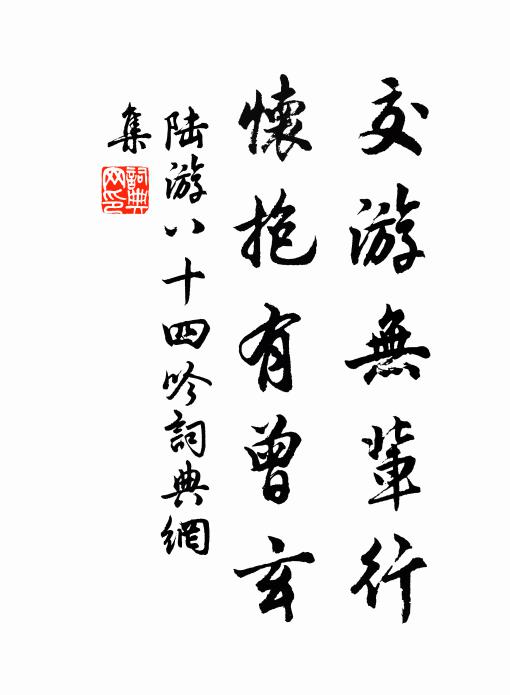 交游無輩行
懷抱有曾玄
陸游八十四吟詞典網
集
詞典
网印